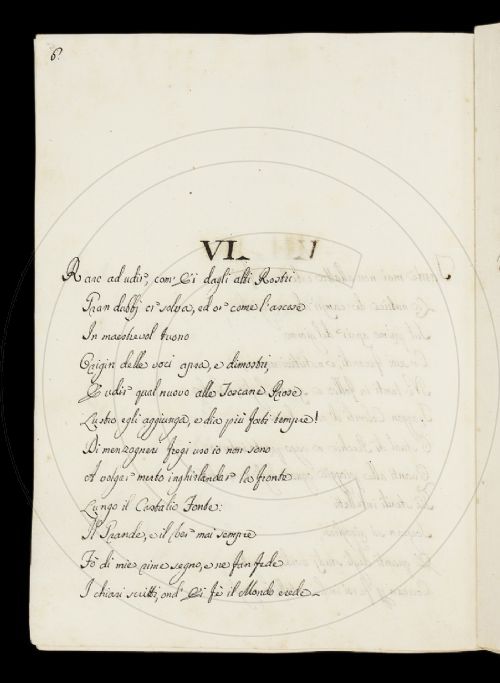 6.
VI.
Rare ad udir, com' Ei dagli alti Rostri
Gran dubbj or solva, ed or come l'ascose
In maestrevol tuono
Origin delle voci apra, e dimostri,
E udir qual nuovo alle Toscane Prose
Lustro egli aggiunga, e dia più forti tempre!
Di menzogneri fregi uso io non sono
A volgar merto inghirlandar la fronte
Lungo il Castalio Fonte:
Il Grande, e il ber mai sempre
Fò di mie rime segno, e ne fan fede
I chiari scritti, ond' Ei fè il Mondo erede